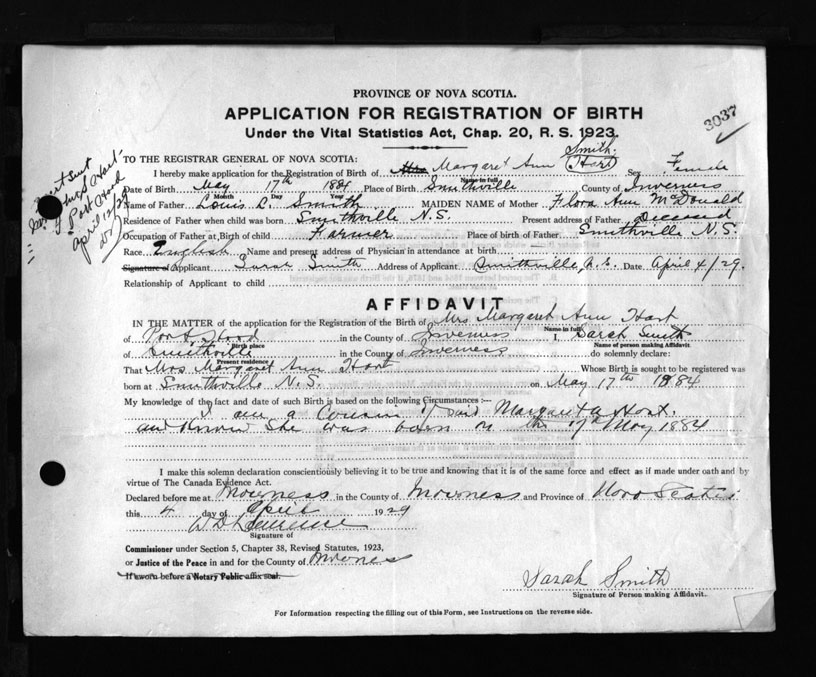 PROVINCE OF NOVA SCOTIA.
APPLICATION FOR REGISTRATION OF BIRTH
Under the Vital Statistics Act, Chap. 20, R. S. 1923.
3037
TO THE REGISTRAR GENERAL OF NOVA SCOTIA:
Smith
I hereby make application for the Registration of Birth of Margaret Ann (Hart) Sex Female
Name in full
Date of Birth May 17th 1884 Place of Birth Smithville County of Inverness
Month Day Year
Name of Father Louis C. Smith MAIDEN NAME of Mother Flora Ann McDonald
Residence of Father when child was born Smithville N.S. Present address of Father Deceased
Occupation of Father at Birth of child Farmer Place of birth of Father Smithville N.S.
Race English Name and present address of Physician in attendance at birth
Signature of Applicant Sarah Smith Address of Applicant Smithville, N.S. Date April 4/29.
Relationship of Applicant to child
AFFIDAVIT
IN THE MATTER of the application for the Registration of the Birth of Mrs Margaret Ann Hart
Name in full
of Port Hood in the County of Inverness I, Sarah Smith
Birth place Name of person making Affidavit
of Smithville in the County of Inverness do solemnly declare:
Present residence
That Mrs. Margaret Ann Hart Whose Birth is sought to be registered was
born at Smithville N.S. on May 17th 1884
My knowledge of the fact and date of such Birth is based on the following Circumstances :—
I am a Cousin of said Margaret A Hart.
and Know She was born on the 17th May 1884
I make this solemn declaration conscientiously believing it to be true and knowing that it is of the same force and effect as if made under oath and by
virtue of The Canada Evidence Act.
Declared before me at Inverness in the County of Inverness and Province of Nova Scotia
this 4 day of April 1929
W D Lawrence
Signature of
Commissioner under Section 5, Chapter 38, Revised Statutes, 1923,
or Justice of the Peace in and for the County of Inverness
If sworn before a Notary Public affix seal.
Sarah Smith
Signature of Person making Affidavit.
For Information respecting the filling out of this Form, see Instructions on the reverse side.
Hart
Port Hood
April 12/29